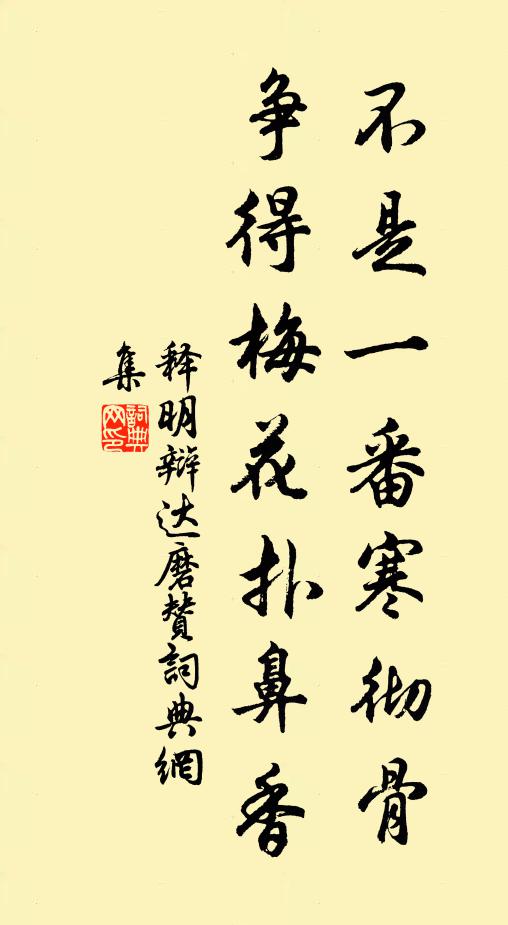 不是一番寒彻骨
争得梅花扑鼻香
释明辩达磨赞詞典網
集
詞典
网印